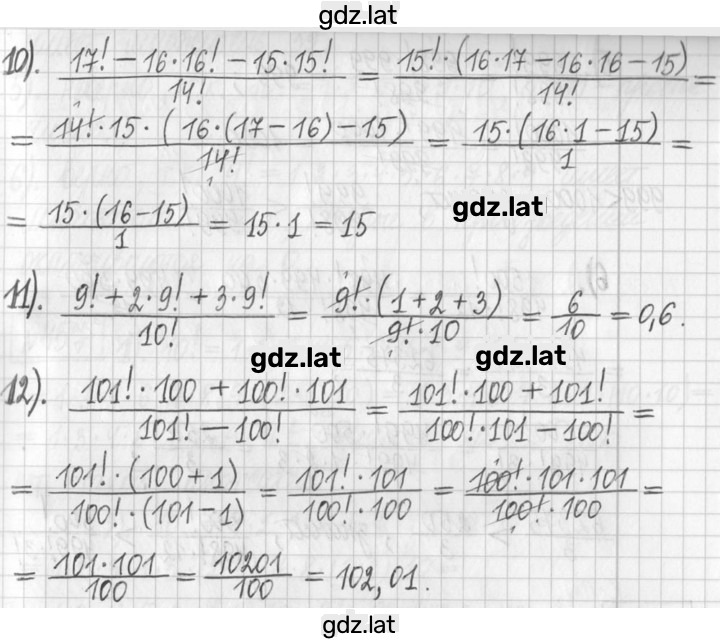 gdz.lat
10). (17! − 16·16! − 15·15!)/14! = (15!·(16·17 − 16·16 − 15))/14! =
= (14!·15·(16·(17−16)−15))/14! = (15·(16·1−15))/1 =
= (15·(16−15))/1 = 15·1 = 15 gdz.lat
11). (9! + 2·9! + 3·9!)/10! = (9!·(1+2+3))/(9!·10) = 6/10 = 0,6.
gdz.lat gdz.lat
12). (101!·100 + 100!·101)/(101! − 100!) = (101!·100 + 101!)/(100!·101 − 100!) =
= (101!·(100+1))/(100!·(101−1)) = (101!·101)/(100!·100) = (100!·101·101)/(100!·100) =
= (101·101)/100 = 10201/100 = 102,01.
gdz.lat